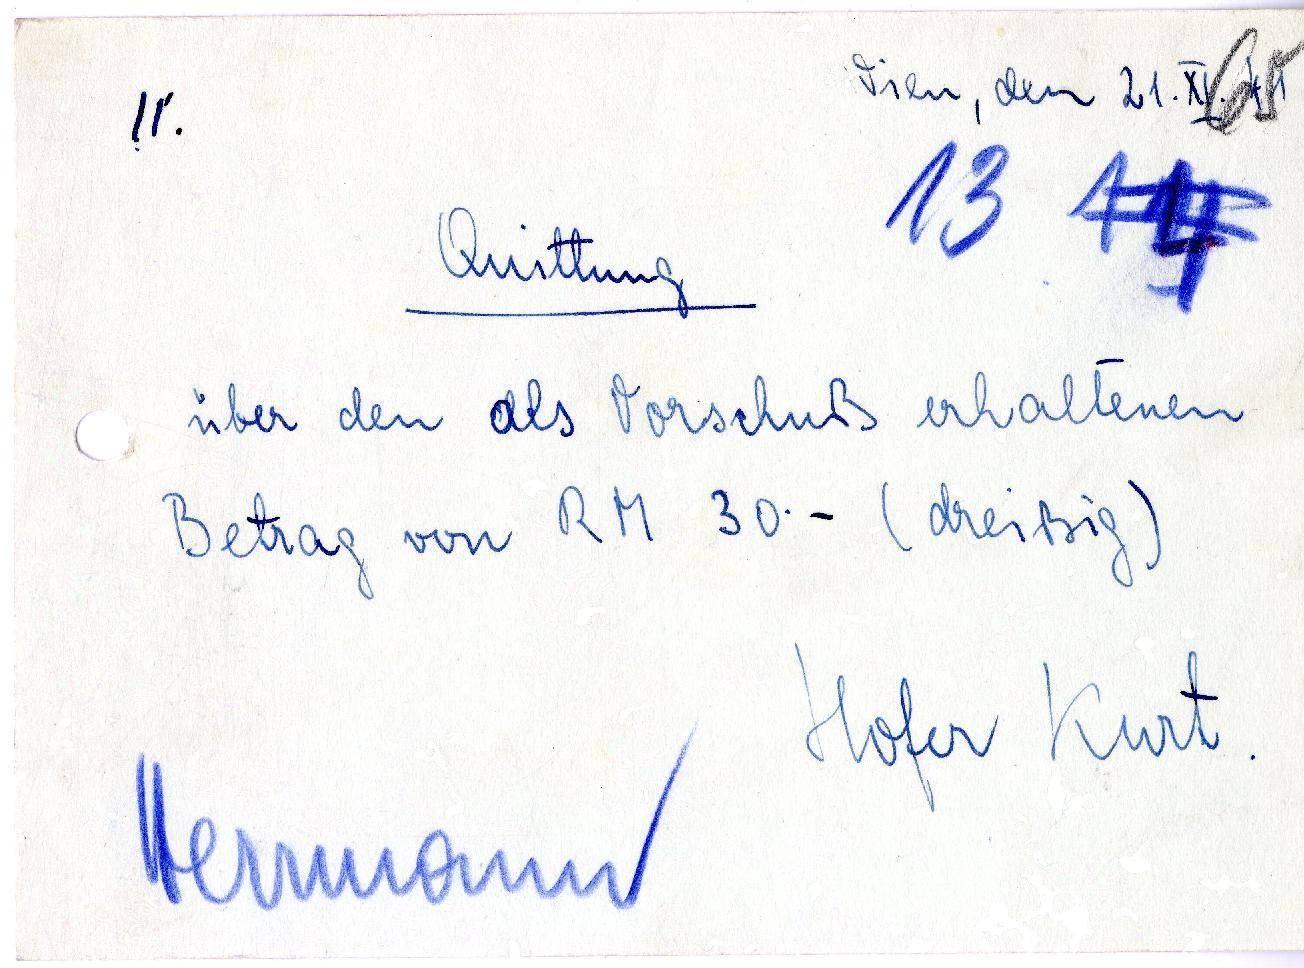 Wien, den 21. XI. 41
65
11.
13
Quittung
über den als Vorschuß erhaltenen
Betrag von RM 30.- (dreißig)
Hofer Kurt.
Herrmann